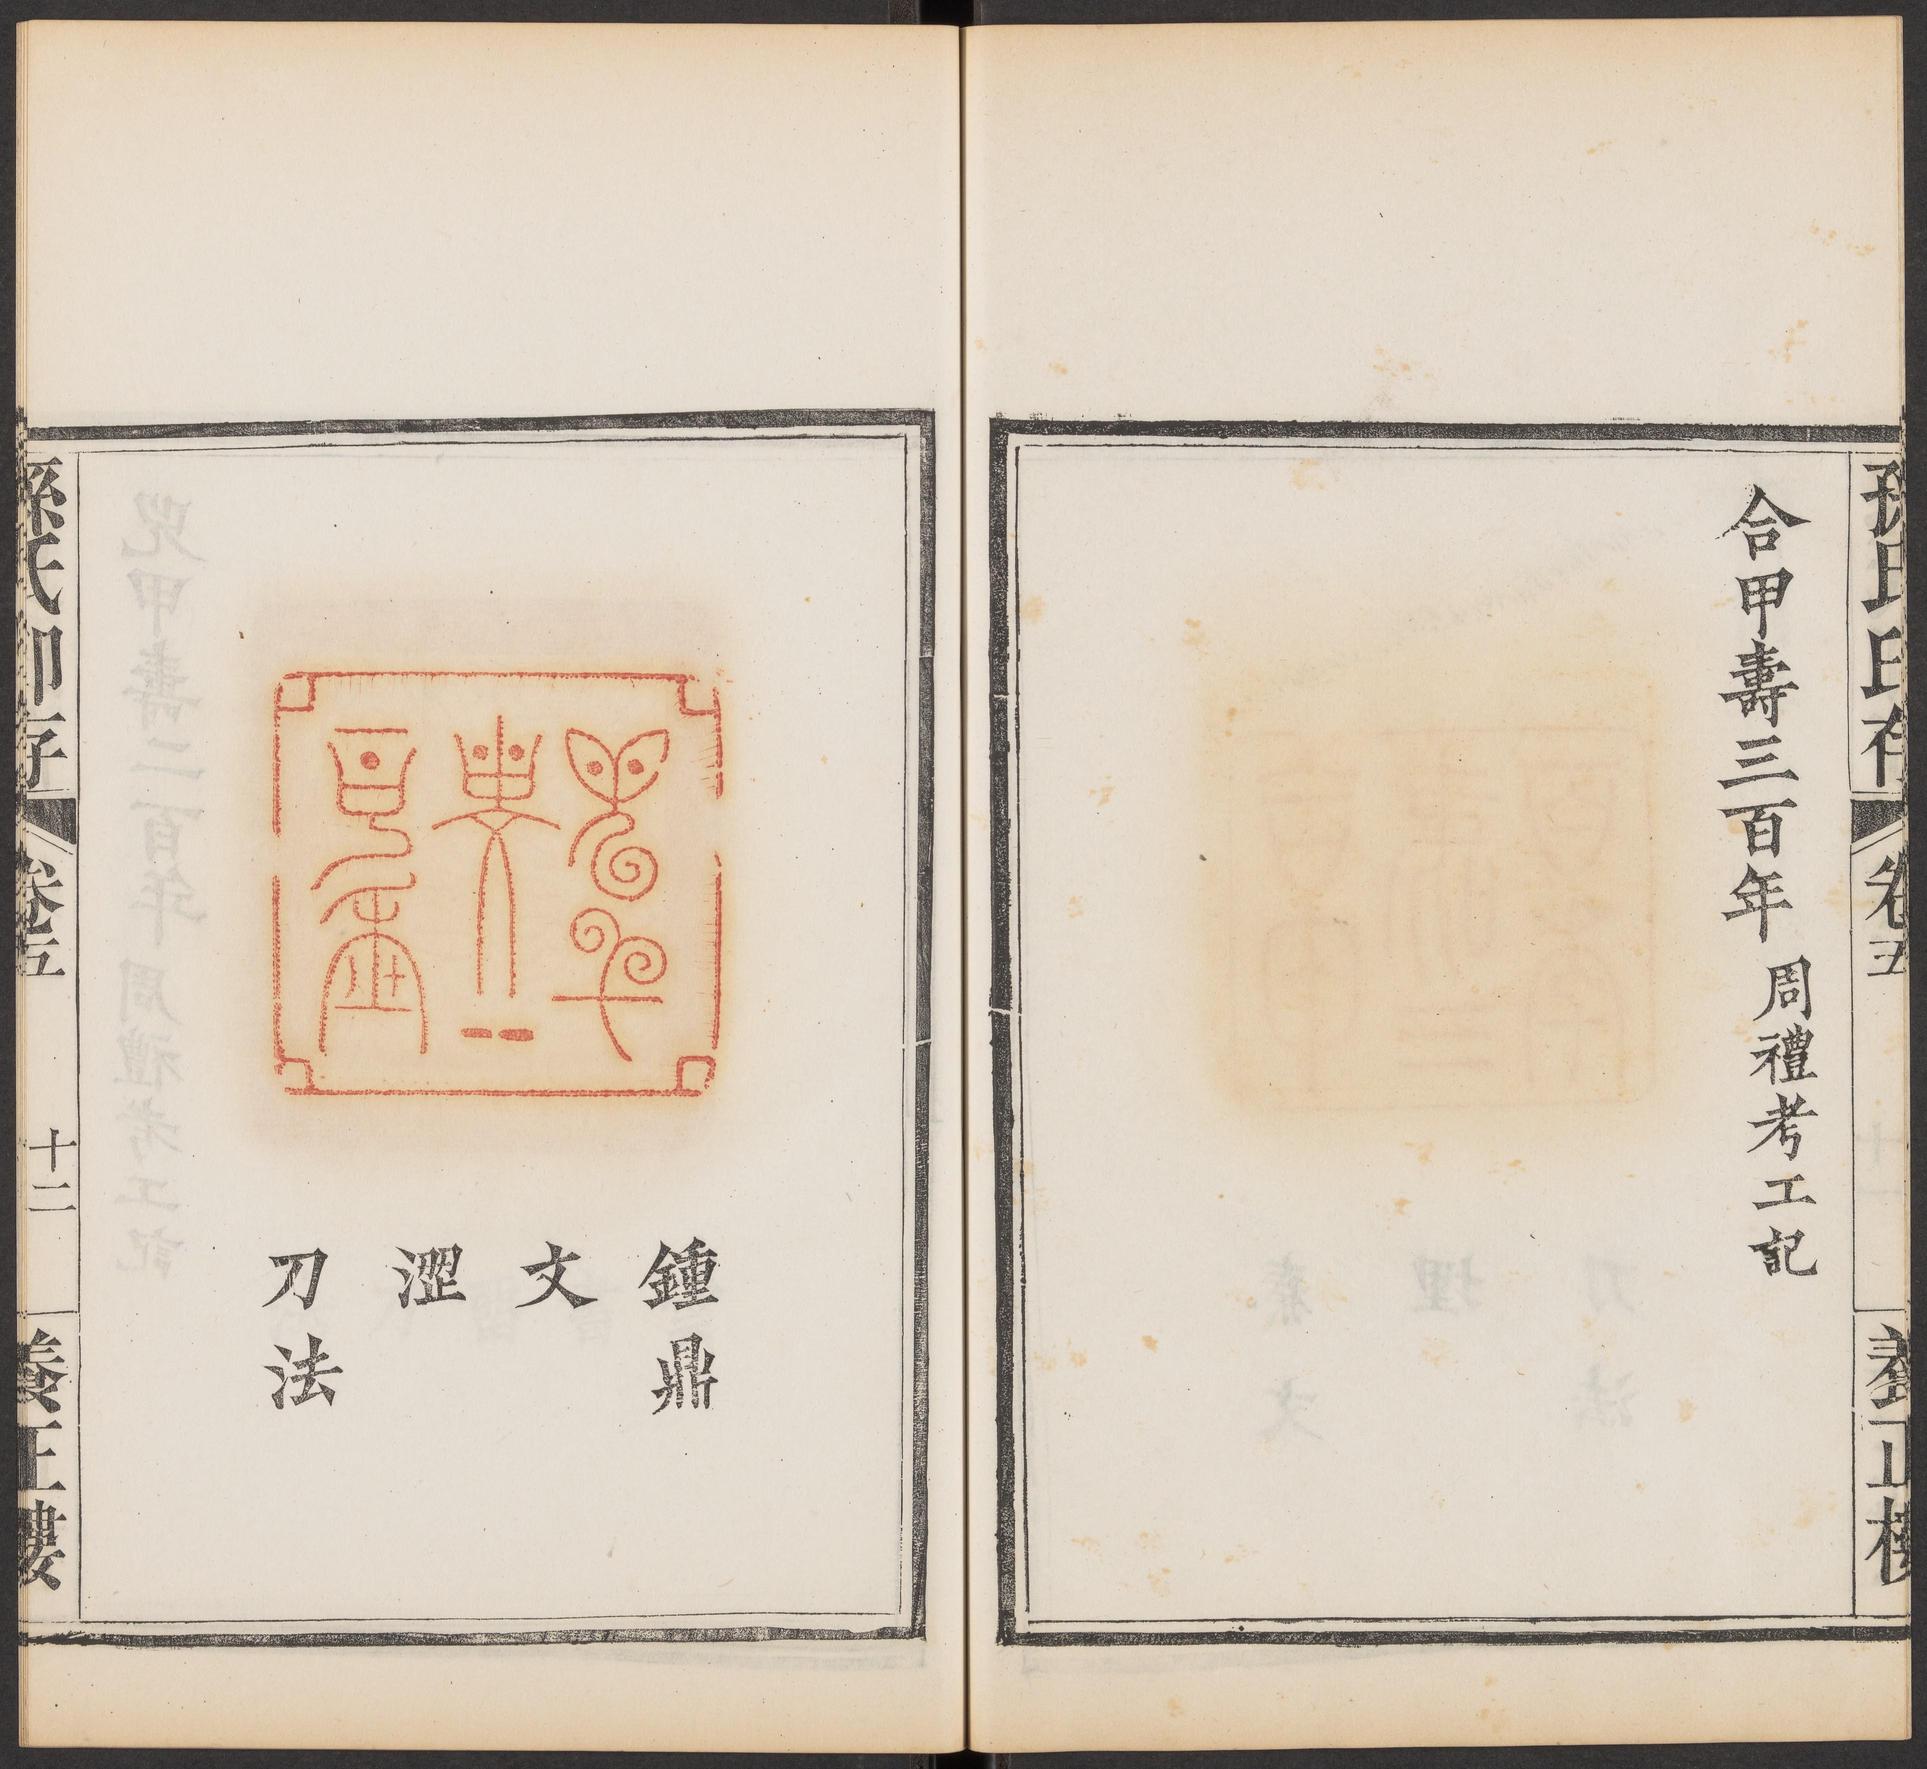 孫氏印存
卷五
養正樓
合甲壽三百年 周禮考工記
鍾鼎
文
澀
刀法
孫氏印存
卷五
十二
養正樓